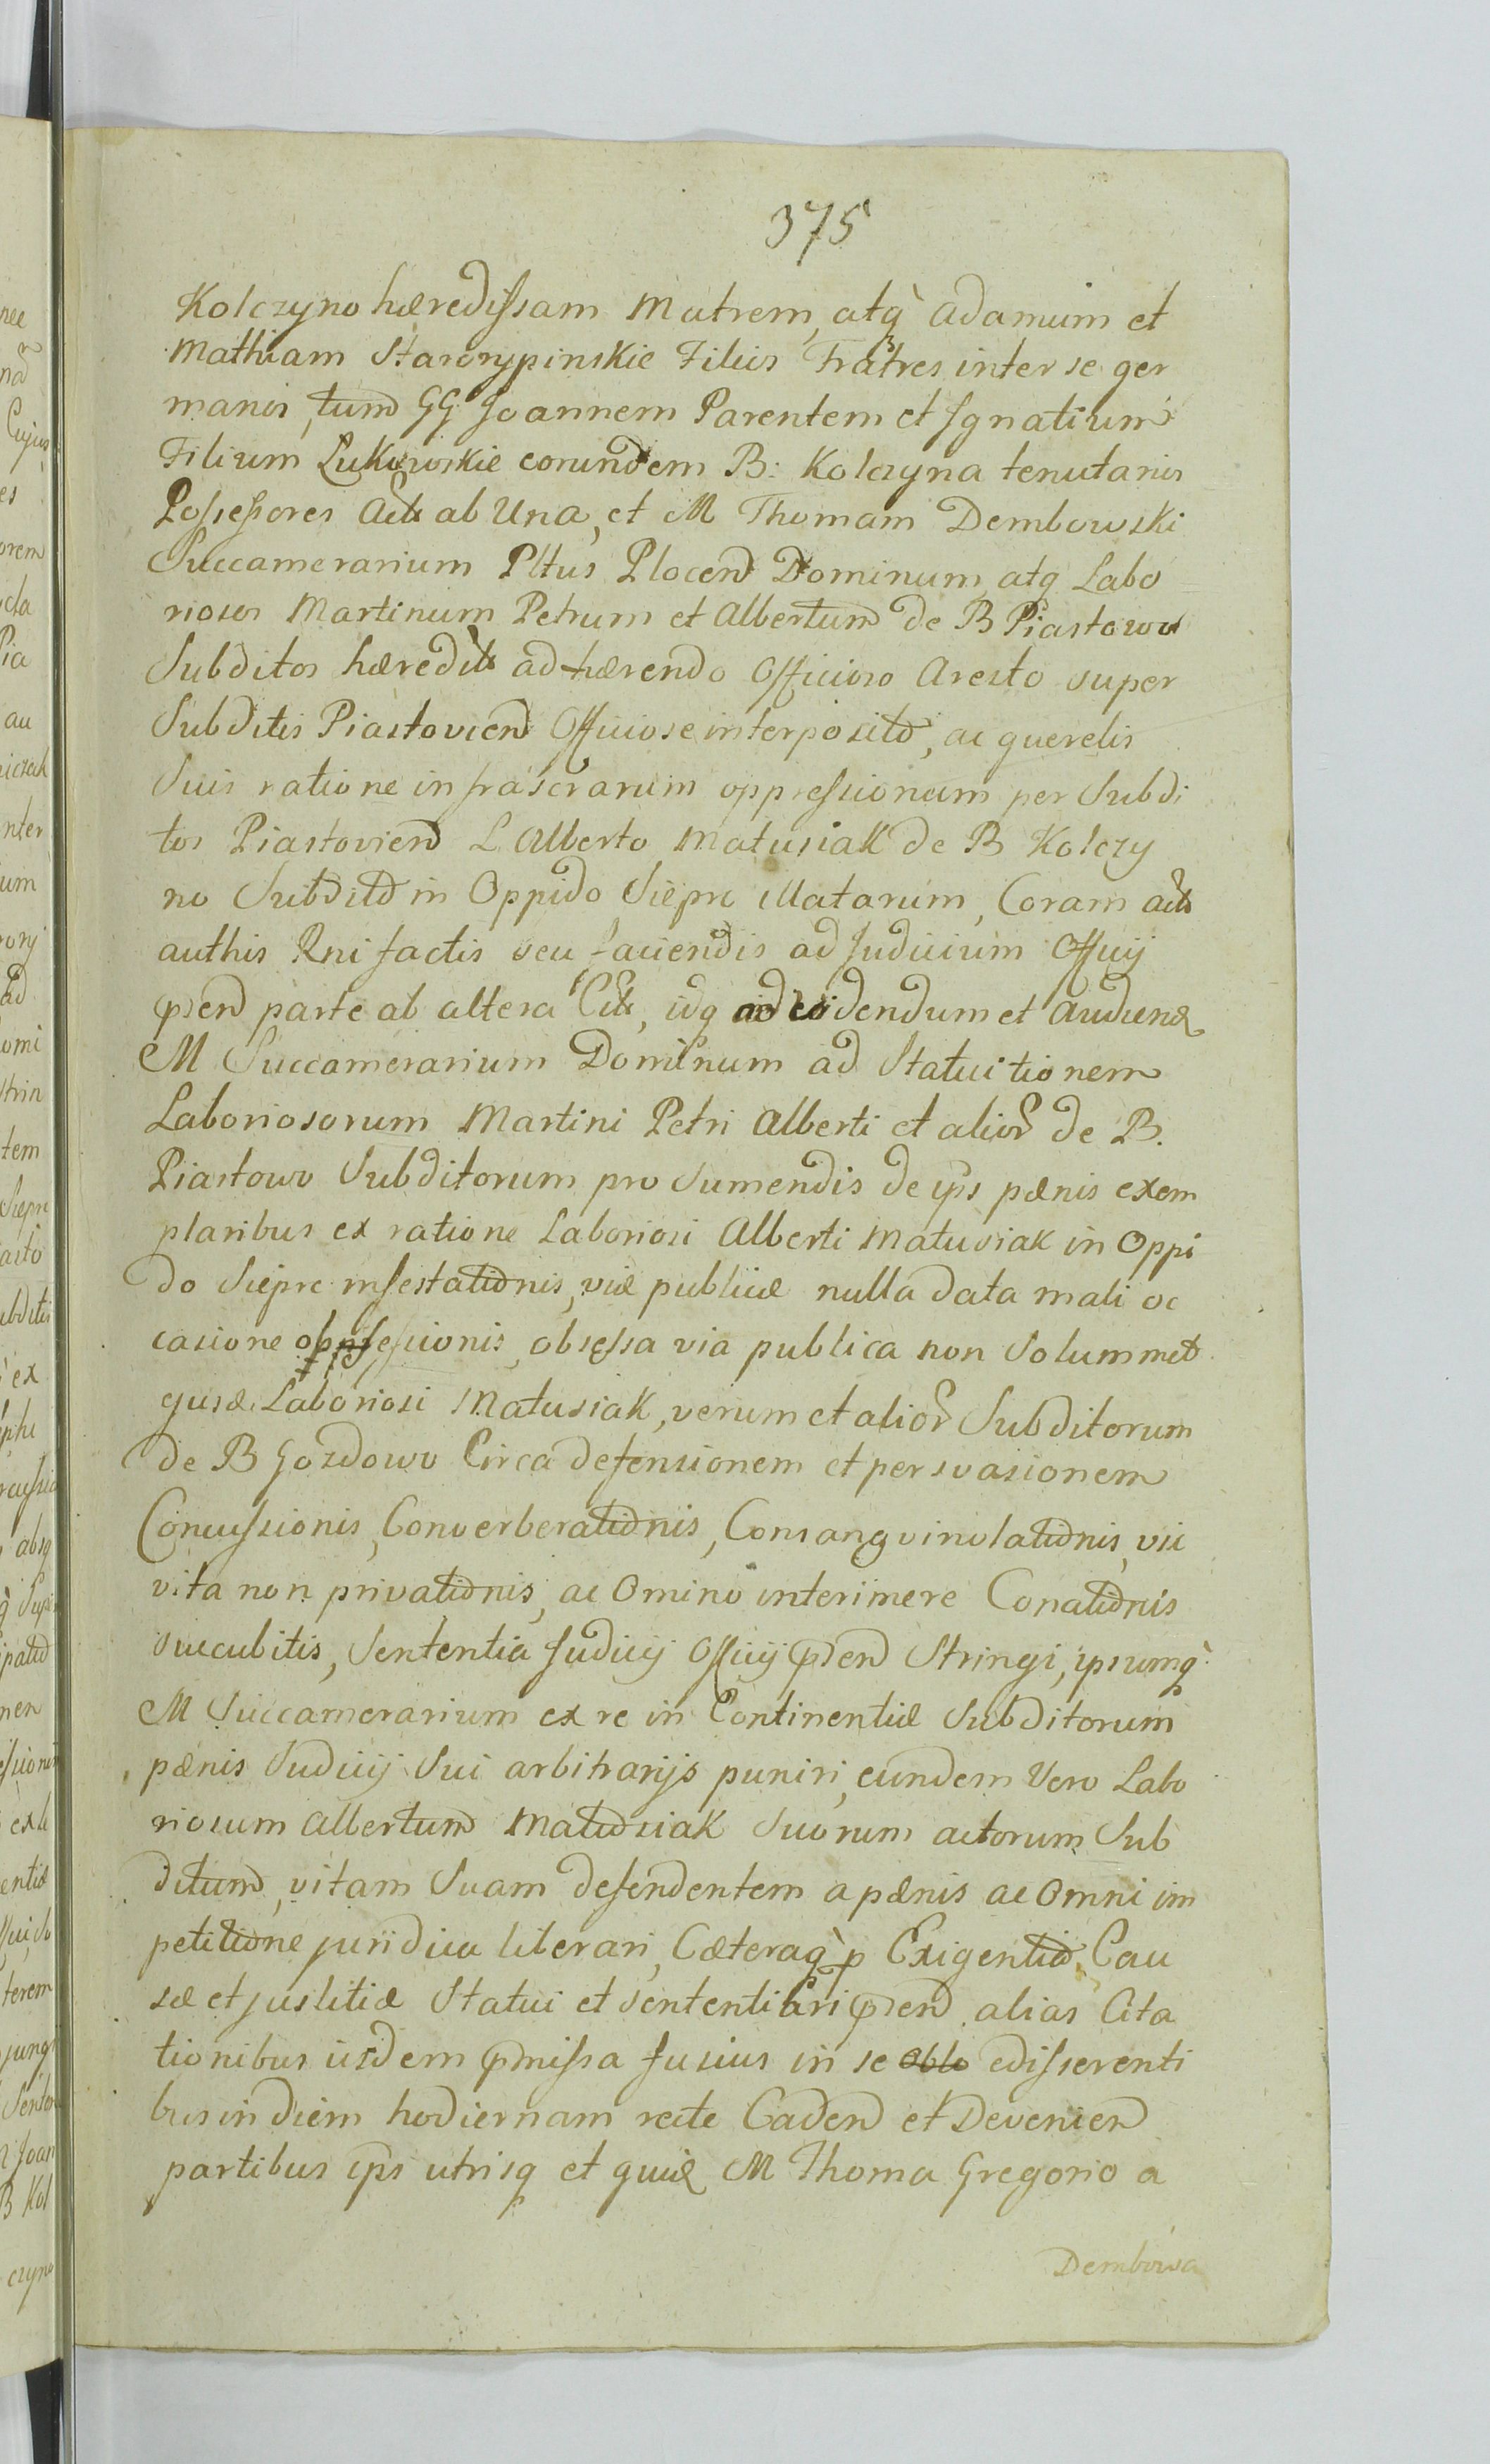 375
Kolczyno hæredissam Matrem, atq̀ Adamum et
Mathiam Starorypinskie Filios Fratres inter se ger
manos, tum GG Joannem Parentem et Ignatium
Filium Lukowskie eorundem B: Kolczyna tenutarios
Possessores Acts ab Una, et M Thomam Dembowski
Succamerarium Pltus Plocen Dominum, atq Labo
riosos Martinum Petrum et Albertum de B Piastowo
Subditos hæredit adhærendo Officioso Aresto super
Subditis Piastovien Officiose interposito, ac querelis
Suis ratione infrascrarum oppressionum per Subdi
tos Piastovien L Alberto Matusiak de B Kolczy
no Subdito in Oppido Siepre illatarum, Coram acts
authis Rni factis seu faciendis ad Judicium Officij
pnden parte ab altera Cit, idq ad videndum et Audiend
M Succamerarium Dominum ad Statuitionem
Laboriosorum Martini Petri Alberti et alior de B.
Piastowo Subditorum pro Sumendis de ips pænis exem
plaribus ex ratione Laboriosi Alberti Matusiak in Oppi
do Siepre infestationis, viæ publicæ nulla data mali oc
casione oppressionis, obsessa via publica non Solummet
ejusd. Laboriosi Matusiak, verum et alior Subditorum
de B Gozdowo Circa defensionem et persvasionem
Concussionis, Converberationis, Consangvinolationis, vix
vita non privationis, ac Omino interimere Conationis
succubitis, Sententia Judicij Officij pnden Stringi, ipsumq̀
M Succamerarium ex re in Continentiæ Subditorum
pænis Judicij Sui arbitrarijs puniri, eundem Vero Labo
riosum Albertum Matusiak Suorum actorum Sub
ditum, vitam Suam defendentem a pænis ac Omni im
petitione juridica liberari, Cæteraq̀ p Exigentia Cau
sæ et justitiæ Statui et Sententiari pnden alias Cita
tionibus iisdem pmissa fusius in se edisserenti
bus in diem hodiernam recte Caden et Devenien
partibus ips utrisq et quid M Thoma Gregorio a
Dembowa